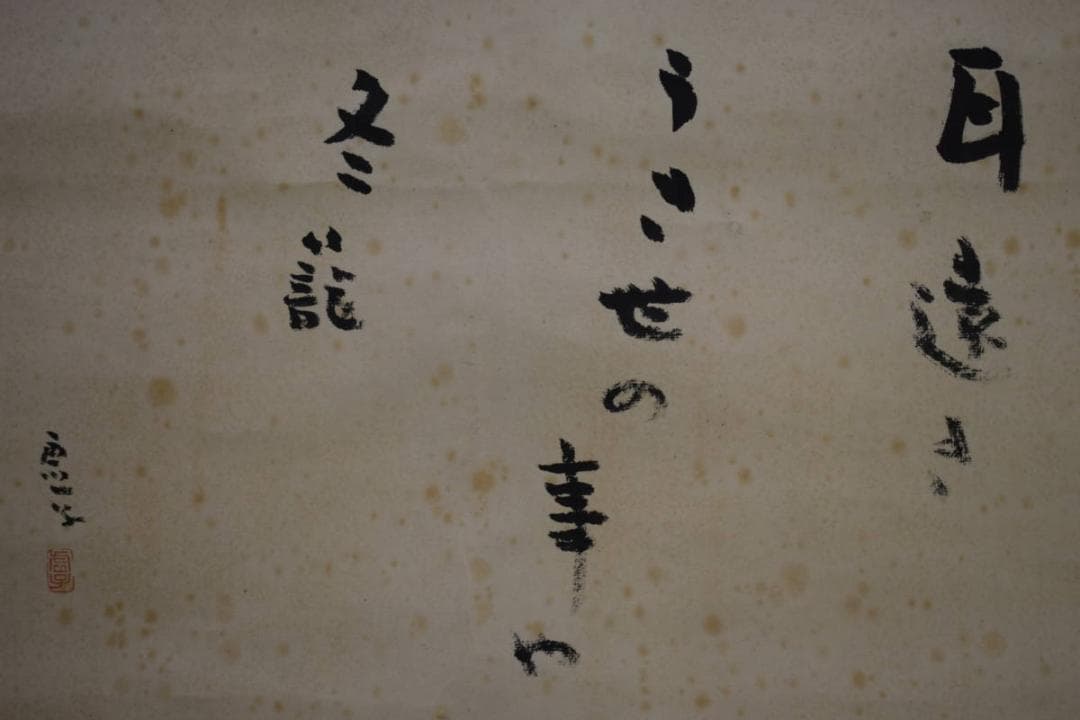 耳遠き
うき世の事や
冬籠